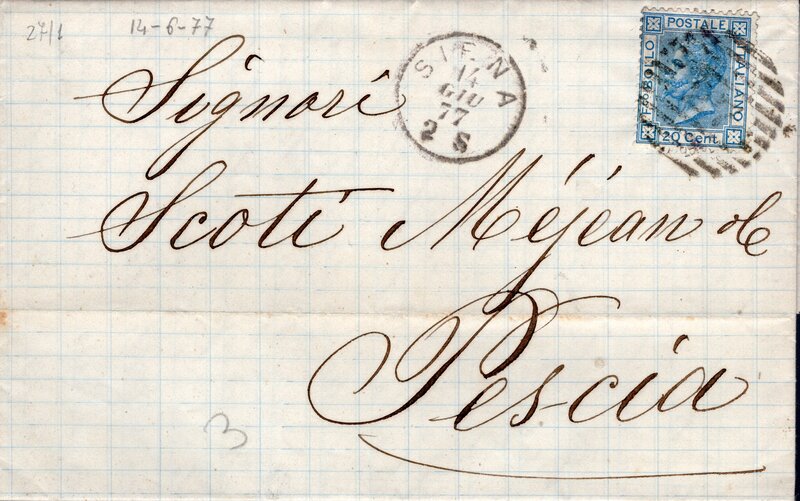 27/1
14-6-77
SIENA
14
GIU
77
2 S
POSTALE
F.co BOLLO
ITALIANO
20 Cent.
Signori
Scoti Méjean &c
Pescia
3